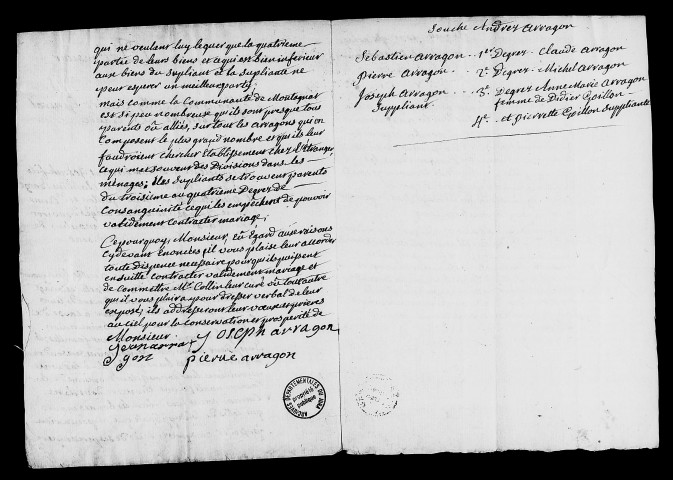 qui ne veulent luy leguer que la quatrieme
partie de leurs biens et ce qui est bien inferieur
aux biens du supliant et la supliante ne
peut esperer un meilleur party,
mais comme la Communauté de Montagnat
est si peu nombreuse qu'ils sont presque tous
parents où alliés, sur tout les arragons qui en
Composent le plus grand nombre et qu'ils leur
faudroient chercher Etablissement chez l'Etranger
ce qui met souvent des Divisions dans les
ménages; les supliants se trouvent parents
du troisieme au quatrieme Degrez de
Consanguinité ce qui les empêchent de pouvoir
validement contracter mariage;
Ce pourquoy, Monsieur, Eû Egard aux raisons
cy devant énoncées, il vous plaise leur accorder
toute dispence necessaire pour qu'ils puissent
ensuitte contracter validement mariage et
de Commettre Mr. Collin leur curé où tout autre
qu'il vous plaira pour dresser verbal de leur
exposé; ils addresseront leur vœux et prieres
au ciel pour la conservation et prosperité de
Monsieur.
Jean arra
gon
Joseph arragon
pierre arragon
ARCHIVES DEPARTEMENTALES DU JURA
propriété
publique
Souche Andrez Arragon
Sébastien Arragon .. 1er Degrez .. Claude Arragon
Pierre Arragon ... 2e Degrez .. Michel Arragon
Joseph Arragon ... 3e Degrez Anne Marie Arragon
Suppliant femme de Didier Poillon
4e .. et Pierrette Poillon Suppliante